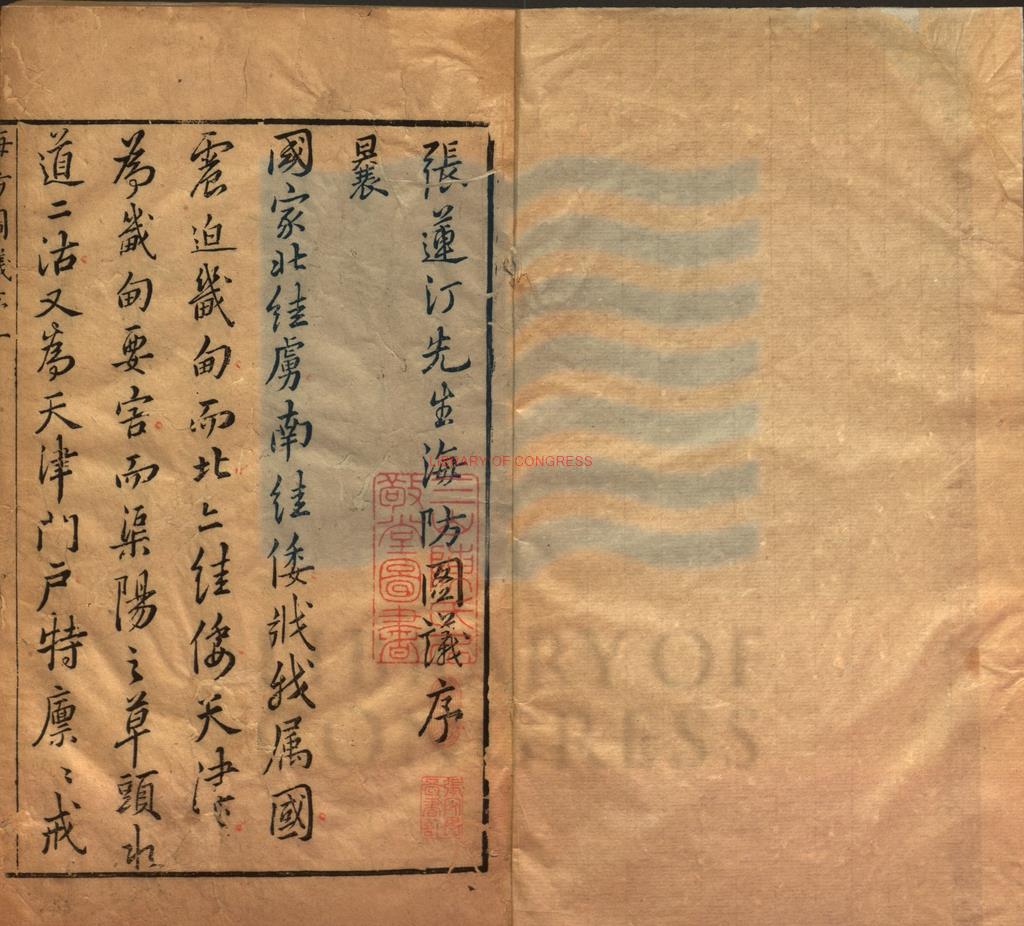 張蓮汀先生海防圖議序
曩
國家北絓虜南絓倭戕我属國
震迫畿甸而北亦絓倭天津
為畿甸要害而渠陽之草頭水
道二沽又為天津門户特凛〻戒
海防圖議序 一
LIBRARY OF CONGRESS
LIBRARY OF
CONGRESS